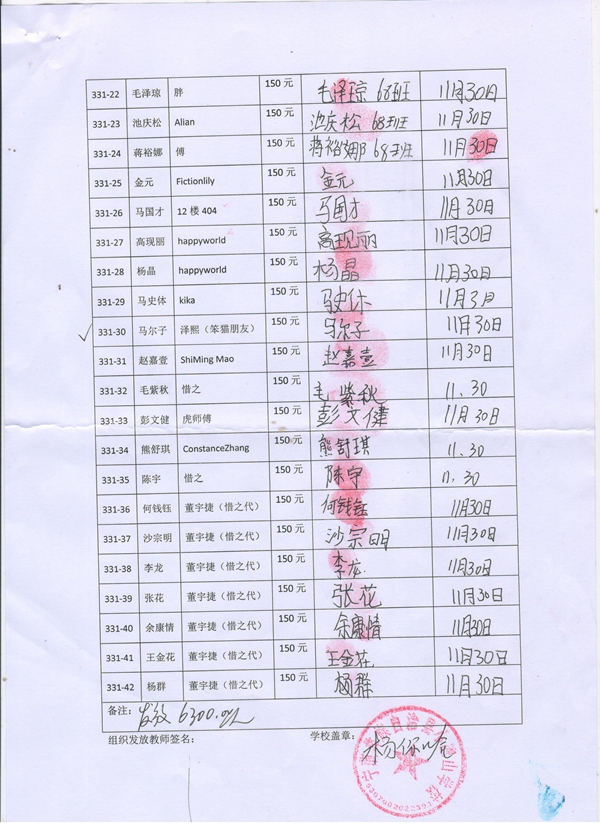 331-22 毛泽琼 胖 150 元 毛泽琼 68班 11月30日
331-23 池庆松 Alian 150 元 池庆松 68班 11月30日
331-24 蒋裕娜 傅 150 元 蒋裕娜 68班 11月30日
331-25 金元 Fictionlily 150 元 金元 11月30日
331-26 马国才 12 楼 404 150 元 马国才 11月30日
331-27 高现丽 happyworld 150 元 高现丽 11月30日
331-28 杨晶 happyworld 150 元 杨晶 11月30日
331-29 马史体 kika 150 元 11月3月
331-30 马尔子 泽熙（笨猫朋友） 150 元 马尔子 11月30日
331-31 赵嘉壹 ShiMing Mao 150 元 赵嘉壹 11月30日
331-32 毛紫秋 惜之 150 元 毛紫秋 11.30
331-33 彭文健 虎师傅 150 元 彭文健 11月30日
331-34 熊舒琪 ConstanceZhang 150 元 熊舒琪 11.30
331-35 陈宇 惜之 150 元 陈宇 11.30
331-36 何钱钰 董宇捷（惜之代） 150 元 何钱钰 11月30日
331-37 沙宗明 董宇捷（惜之代） 150 元 沙宗明 11月30日
331-38 李龙 董宇捷（惜之代） 150 元 李龙 11月30日
331-39 张花 董宇捷（惜之代） 150 元 张花 11月30日
331-40 余康情 董宇捷（惜之代） 150 元 余康情 11月30日
331-41 王金花 董宇捷（惜之代） 150 元 王金花 11月30日
331-42 杨群 董宇捷（惜之代） 150 元 杨群 11月30日
备注： 发放6300.
组织发放教师签名： 学校盖章：